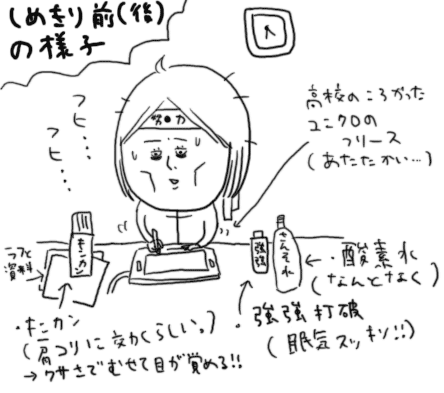 しめきり前(後)
の様子
努●力
フヒ…
フヒ…
高校のころかった
ユニクロの
フリース
(あたたかい…)
キンカン
ラフと
資料
強強
さんそ水
・酸素水
(なんとなく)
・キンカン
(肩コリに効くらしい。)
→クサさでむせて目が覚める!!
・強強打破
(眠気スッキリ!!)